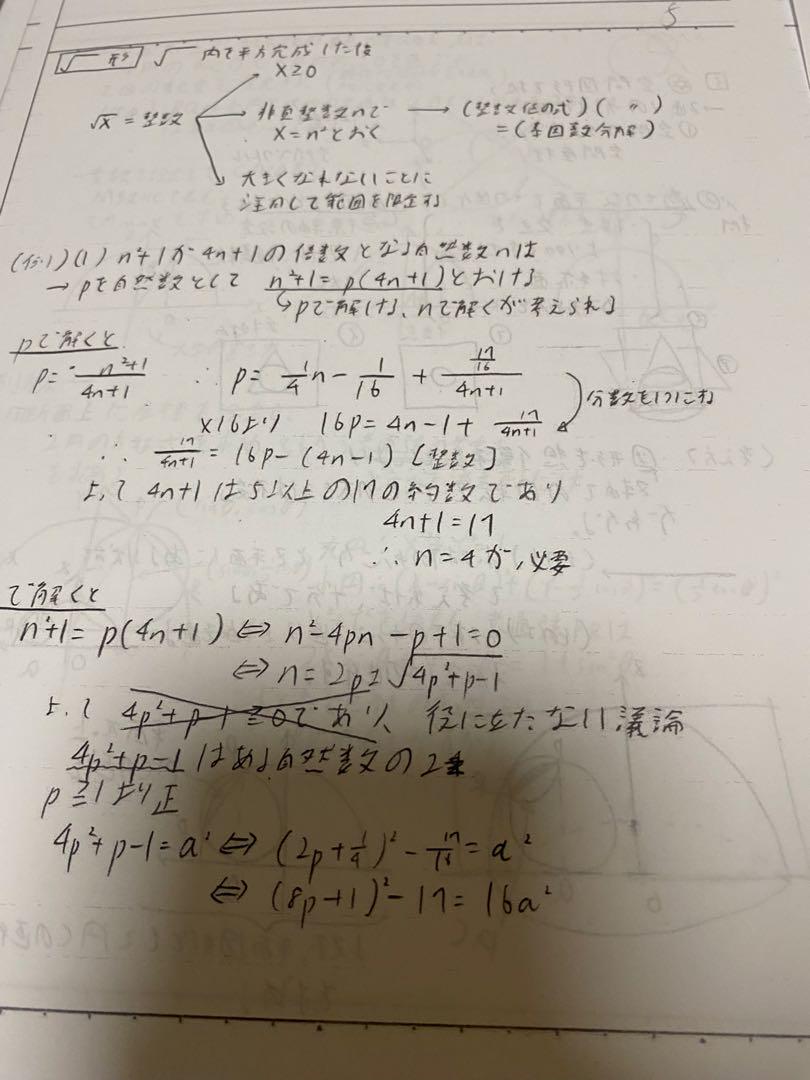 5
√形 √ 内で平方完成した後
X≧0
√X = 整数
非負整数nで X=n²とおく → (整数係の式)( 〃 ) =(素因数分解)
大きくなれないことに
注目して範囲を限定する
(例1)(1) n²+1が4n+1の倍数となる自然数nは
→ pを自然数として n²+1=p(4n+1)とおける
↳pで解ける、nで解くが考えられる
pで解くと
p= n²+1/4n+1 ∴ p= 1/4 n - 1/16 + 17/16/4n+1
×16より 16p=4n-1+ 17/4n+1 分数を1つにする
∴ 17/4n+1 = 16p-(4n-1) [整数]
よって 4n+1 は5以上の17の約数であり
4n+1=17
∴ n=4が必要
で解くと
n²+1=p(4n+1) ⇔ n²-4pn-p+1=0
⇔ n=2p±√4p²+p-1
よって 4p²+p-1≧0であり 役に立たない議論
4p²+p-1 はある自然数の2乗
p≧1より正
4p²+p-1=a² ⇔ (2p+1/4)²-17/16=a²
⇔ (8p+1)²-17=16a²